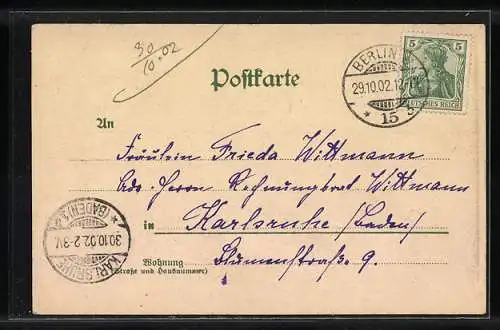 30
10.02
Postkarte
BERLIN
29.10.02.12
* 15 *
5 5
DEUTSCHES REICH
An
Fräulein Frieda Wittmann
Adr. Herrn Rechnungsrat Wittmann
in Karlsruhe (Baden)
Blumenstraße 9.
Wohnung
(Straße und Hausnummer)
KARLSRUHE
30.10.02.2-3N.
* (BADEN) *